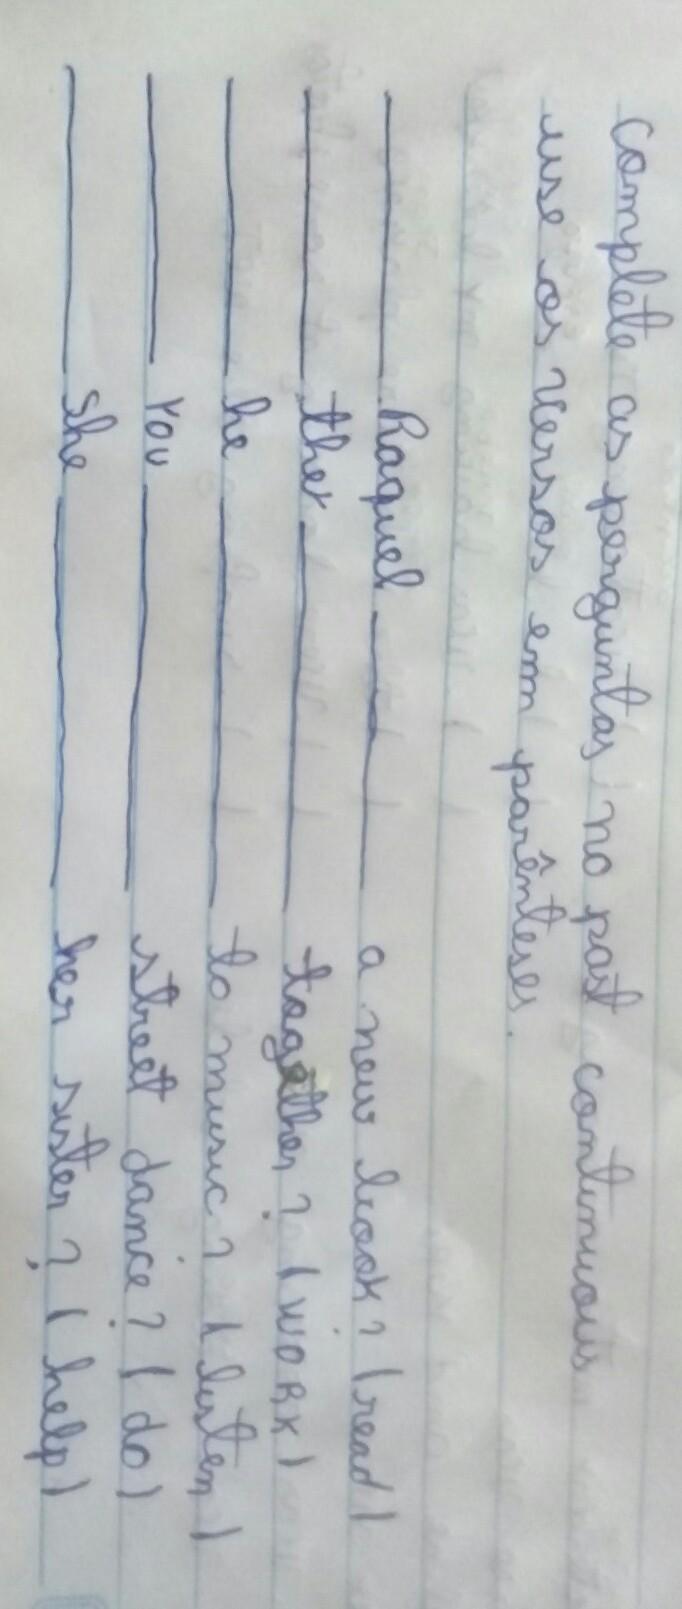 complete as perguntas no past continuous
use os versos em parênteses.
______ Raquel ______ a new book? (read)
______ they ______ together? (work)
______ he ______ to music? (listen)
______ you ______ street dance? (do)
______ she ______ her sister? (help)